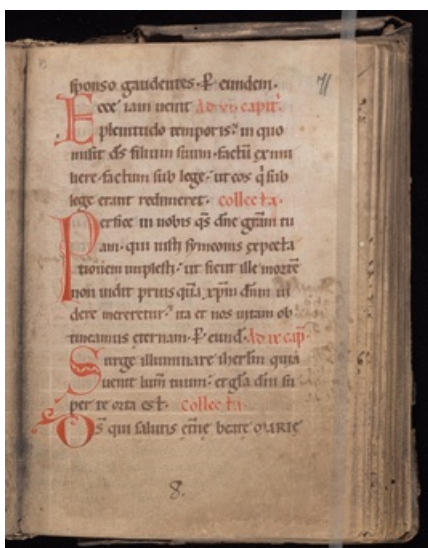 71
sponso gaudentes. P eundem.
Ecce iam uenit Ad vi. capit.
plenitudo temporis. in quo
misit ds filium suum. factū ex mu
liere. factum sub lege. ut eos q̇ sub
lege erant redimeret. collecta.
Perfice in nobis q̄s dn̄e gr̄am tu
am. qui iusti symeonis expecta
tionem implesti. ut sicut ille mortē
non uidit prius quā xp̄m dn̄m ui
dere mereretur. ita et nos uitam ob
tineamus eternam. P eund. Ad ix cap.
Surge illuminare iherl̄m quia
uenit lum̄ tuum. et gl̄a dn̄i su
per te orta est. Collecta.
Ds̄ qui salutis et̄ne beate MARIE
8.